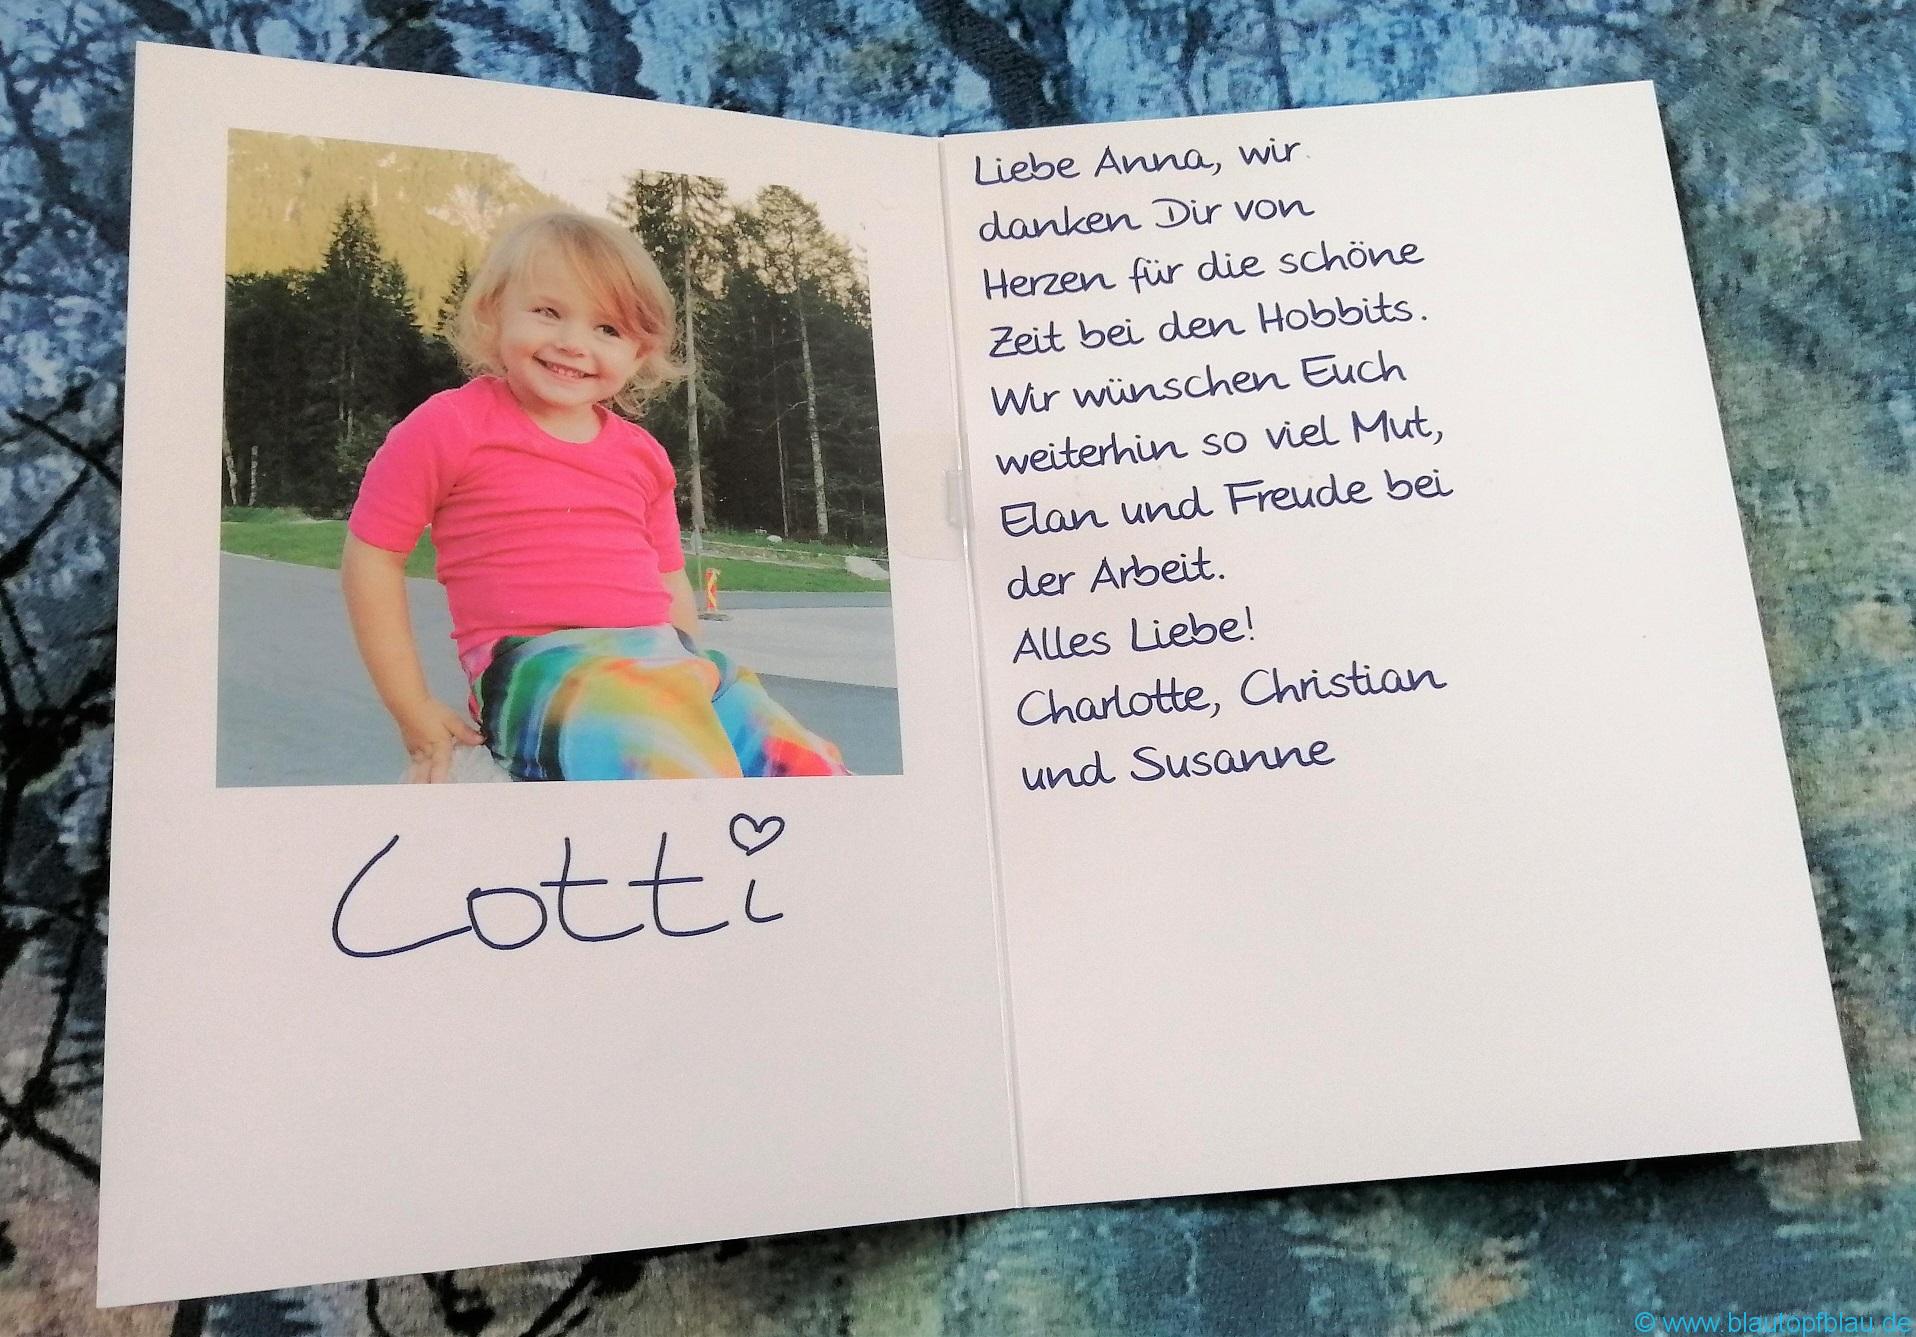 Lotti
Liebe Anna, wir
danken Dir von
Herzen für die schöne
Zeit bei den Hobbits.
Wir wünschen Euch
weiterhin so viel Mut,
Elan und Freude bei
der Arbeit.
Alles Liebe!
Charlotte, Christian
und Susanne
© www.blautopfblau.de